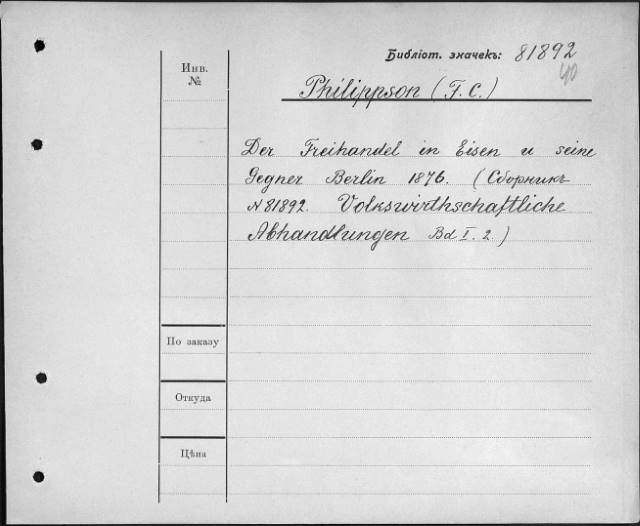 Библіот. значекъ: 81892
40
Инв.
№
Philippson (F. C.)
Der Freihandel in Eisen u seine
Gegner Berlin 1876. (Сборникъ
N 81892. Volkswirthschaftliche
Abhandlungen Bd I. 2.)
По заказу
Откуда
Цѣна